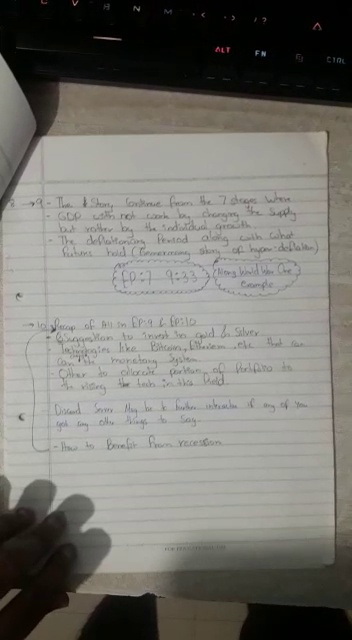 C V B N M < > / ?
ALT FN CTRL
8 → 9 - The Story Continue from the 7 stages where
- GDP will not work by changing the supply
but rather by the individual growth
- The deflationary Period along with what
future hold ( story of hyper-deflation)
EP:7 9:33
Along World War One
Example
→ 10. Recap of All in EP:9 & EP:10
- Suggestion to invest in gold & Silver
- Technologies like Bitcoin, Etherium, etc that can
the monetary System
- Other to allocate portion of Portfolio to
the rising tech in this field
Discord Server May be to further interaction if any of You
got any other things to Say
- How to Benefit from recession